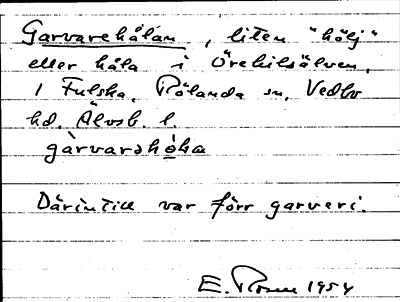 Garvarehålan, liten "hölj"
eller håla i Örekilsälven.
I Fulska, Rölanda sn, Vedbo
hd, Älvsb. l.
gàrvarahóla
Därintill var förr garveri.
E. Rosen 1954